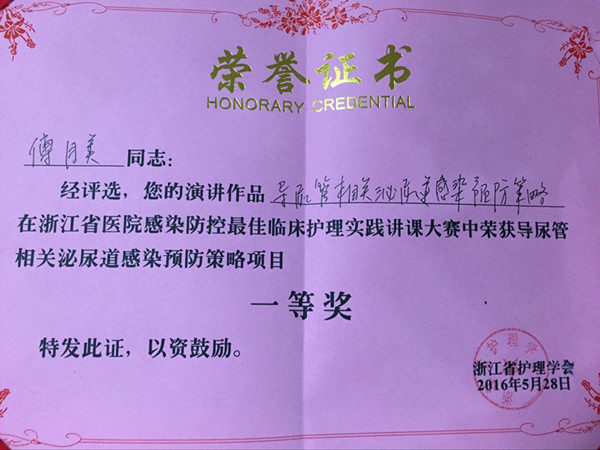 荣誉证书
HONORARY CREDENTIAL
傅月美 同志：
经评选，您的演讲作品 导尿管相关泌尿道感染预防策略
在浙江省医院感染防控最佳临床护理实践讲课大赛中荣获导尿管
相关泌尿道感染预防策略项目
一等奖
特发此证，以资鼓励。
护理学
浙江省护理学会
2016年5月28日